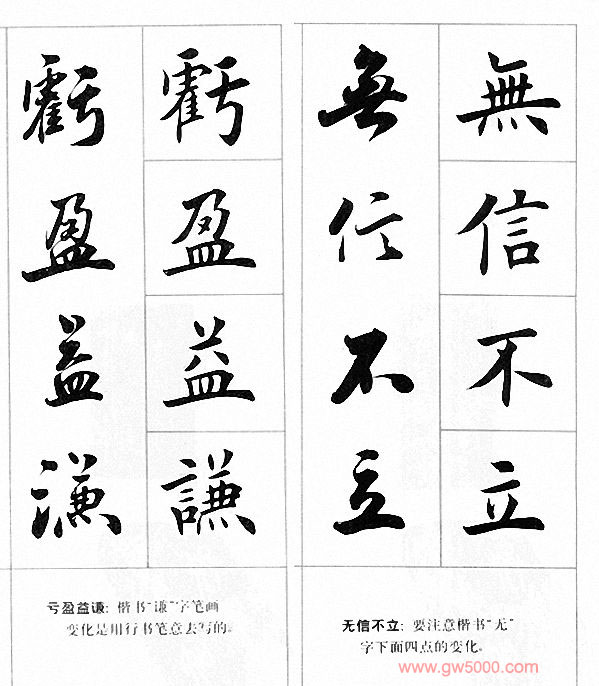 無信不立
無信不立
无信不立：要注意楷书“无”
字下面四点的变化。
虧盈益謙
虧盈益謙
亏盈益谦：楷书“谦”字笔画
变化是用行书笔意去写的。
www.gw5000.com